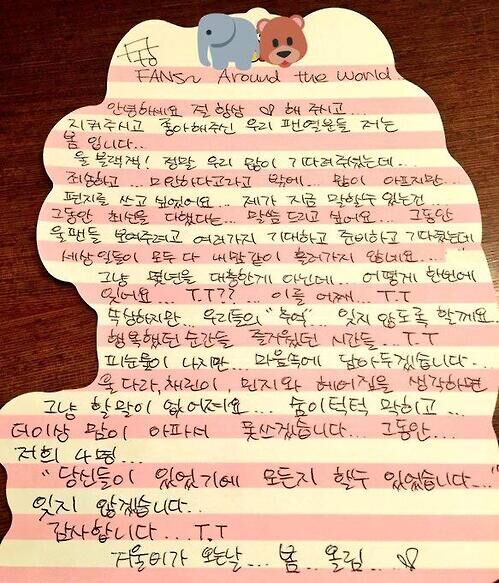 FANS~ Around the world.
안녕하세요 절 항상 ♡ 해 주시고...
지켜주시고 좋아해주신 우리 팬 여러분들 저는
봄 입니다...
울 블랙잭! 정말 우리 많이 기다려주었는데...
죄송하고... 미안하다고라고 밖에... 많이 아프지만...
편지를 쓰고 싶었어요... 제가 지금 말할수 있는건...
그동안 최선을 다했다는... 말씀 드리고 싶어요... 그동안
울팬들 보여주려고 여러가지 기대하고 준비하고 기다렸는데
세상일들이 모두 다 내맘같이 흘러가지 않네요...
그냥 몇년을 대충한게 아닌데... 어떻게 한번에
잊어요... T.T?? ... 이를 어째... T.T
속상하지만... 우리들의 "추억"... 잊지 않도록 할께요..
행복했던 순간들 즐거웠던 시간들... T.T
피눈물이 나지만... 마음속에 담아두겠습니다..
울 다라, 채린이, 민지와 헤어짐을 생각하면
그냥 할말이 없어져요... 숨이턱턱 막히고...
더이상 맘이 아파서 못쓰겠습니다... 그동안...
저희 4명...
"당신들이 있었기에 모든지 할수 있었습니다..."
잊지 않겠습니다..
감사합니다... T.T
겨울비가 오는날... 봄.. 올림... ♡